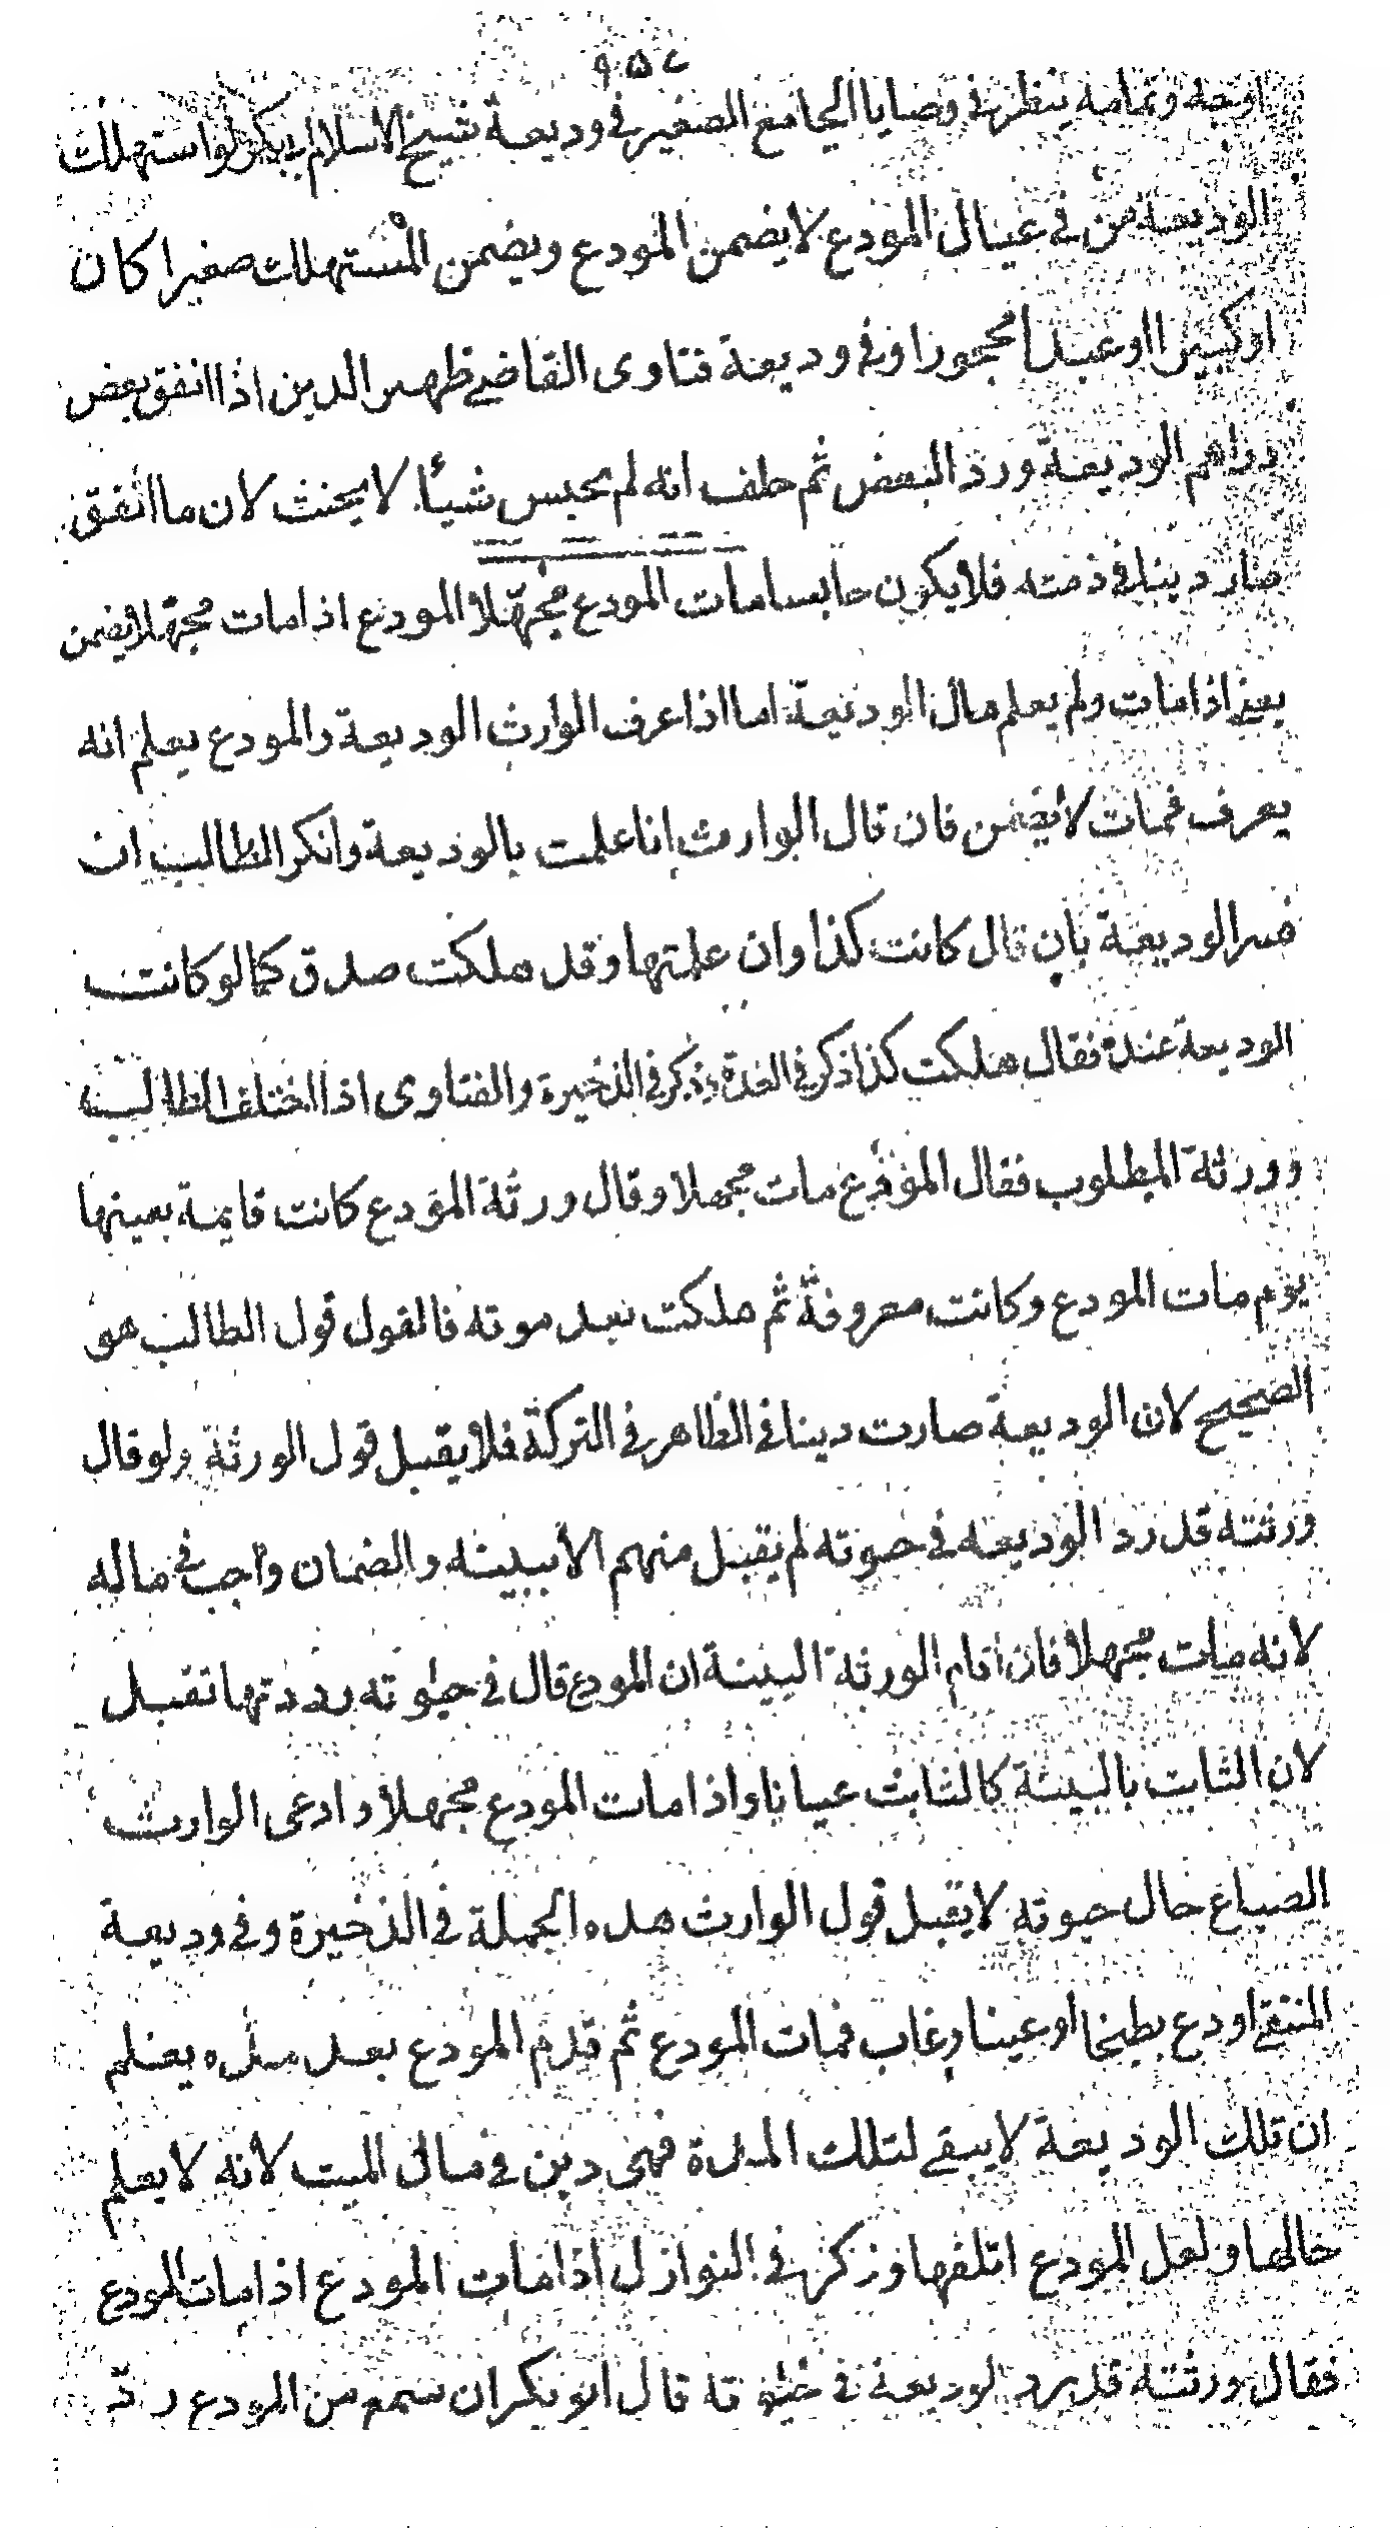 ٩٥٧
اوجه وتمامه ينظر في وصايا الجامع الصغير في وديعة شيخ الاسلام ابي بكر لو استهلك
الوديعة من في عيال المودع لا يضمن المودع ويضمن المستهلك صغيرا كان
او كبيرا او عبدا محجورا وفي وديعة فتاوى القاضي ظهير الدين اذا انفق بعض
دراهم الوديعة ورد البعض ثم حلف انه لم يحبس شيأ لا يحنث لان ما انفق
صار دينا في ذمته فلا يكون حابسا مات المودع مجهّلا المودع اذا مات مجهّلا يضمن
يعني اذا مات ولم يعلم مال الوديعة اما اذا عرف الوارث الوديعة والمودع يعلم انه
يعرف فمات لا يضمن فان قال الوارث انا علمت بالوديعة وانكر الطالب ان
فسر الوديعة بان قال كانت كذا وان علمتها وقد هلكت صدق كما لو كانت
الوديعة عنده فقال هلكت كذا ذكر في العدة وذكر في الذخيرة والفتاوى اذا اختلف الطالب
وورثة المطلوب فقال المودع مات مجهلا وقال ورثة المودع كانت قايمة بعينها
يوم مات المودع وكانت معروفة ثم هلكت بعد موته فالقول قول الطالب هو
الصحيح لان الوديعة صارت دينا في الظاهر في التركة فلا يقبل قول الورثة ولو قال
ورثته قد رد الوديعه في حيوته لم يقبل منهم الا ببينه والضمان واجب في ماله
لانه مات مجهلا فان اقام الورثة البينة ان المودع قال في حيوته رددتها تقبل
لان الثابت بالبينة كالثابت عيانا واذا مات المودع مجهلا وادعى الوارث
الضياع حال حيوته لا يقبل قول الوارث هذه الجملة في الذخيرة وفي وديعة
المنتقى اودع بطيخا او عينا وغاب فمات المودع ثم قدم المودع بعد مدة يعلم
ان تلك الوديعة لا يبقى لتلك المدة فهي دين في مال الميت لانه لا يعلم
حالها ولعل المودع اتلفها وذكر في النوازل اذا مات المودع اذا مات المودع
فقال ورثته قد رد الوديعة في حيوته قال ابو بكر ان سمع من المودع ردّ